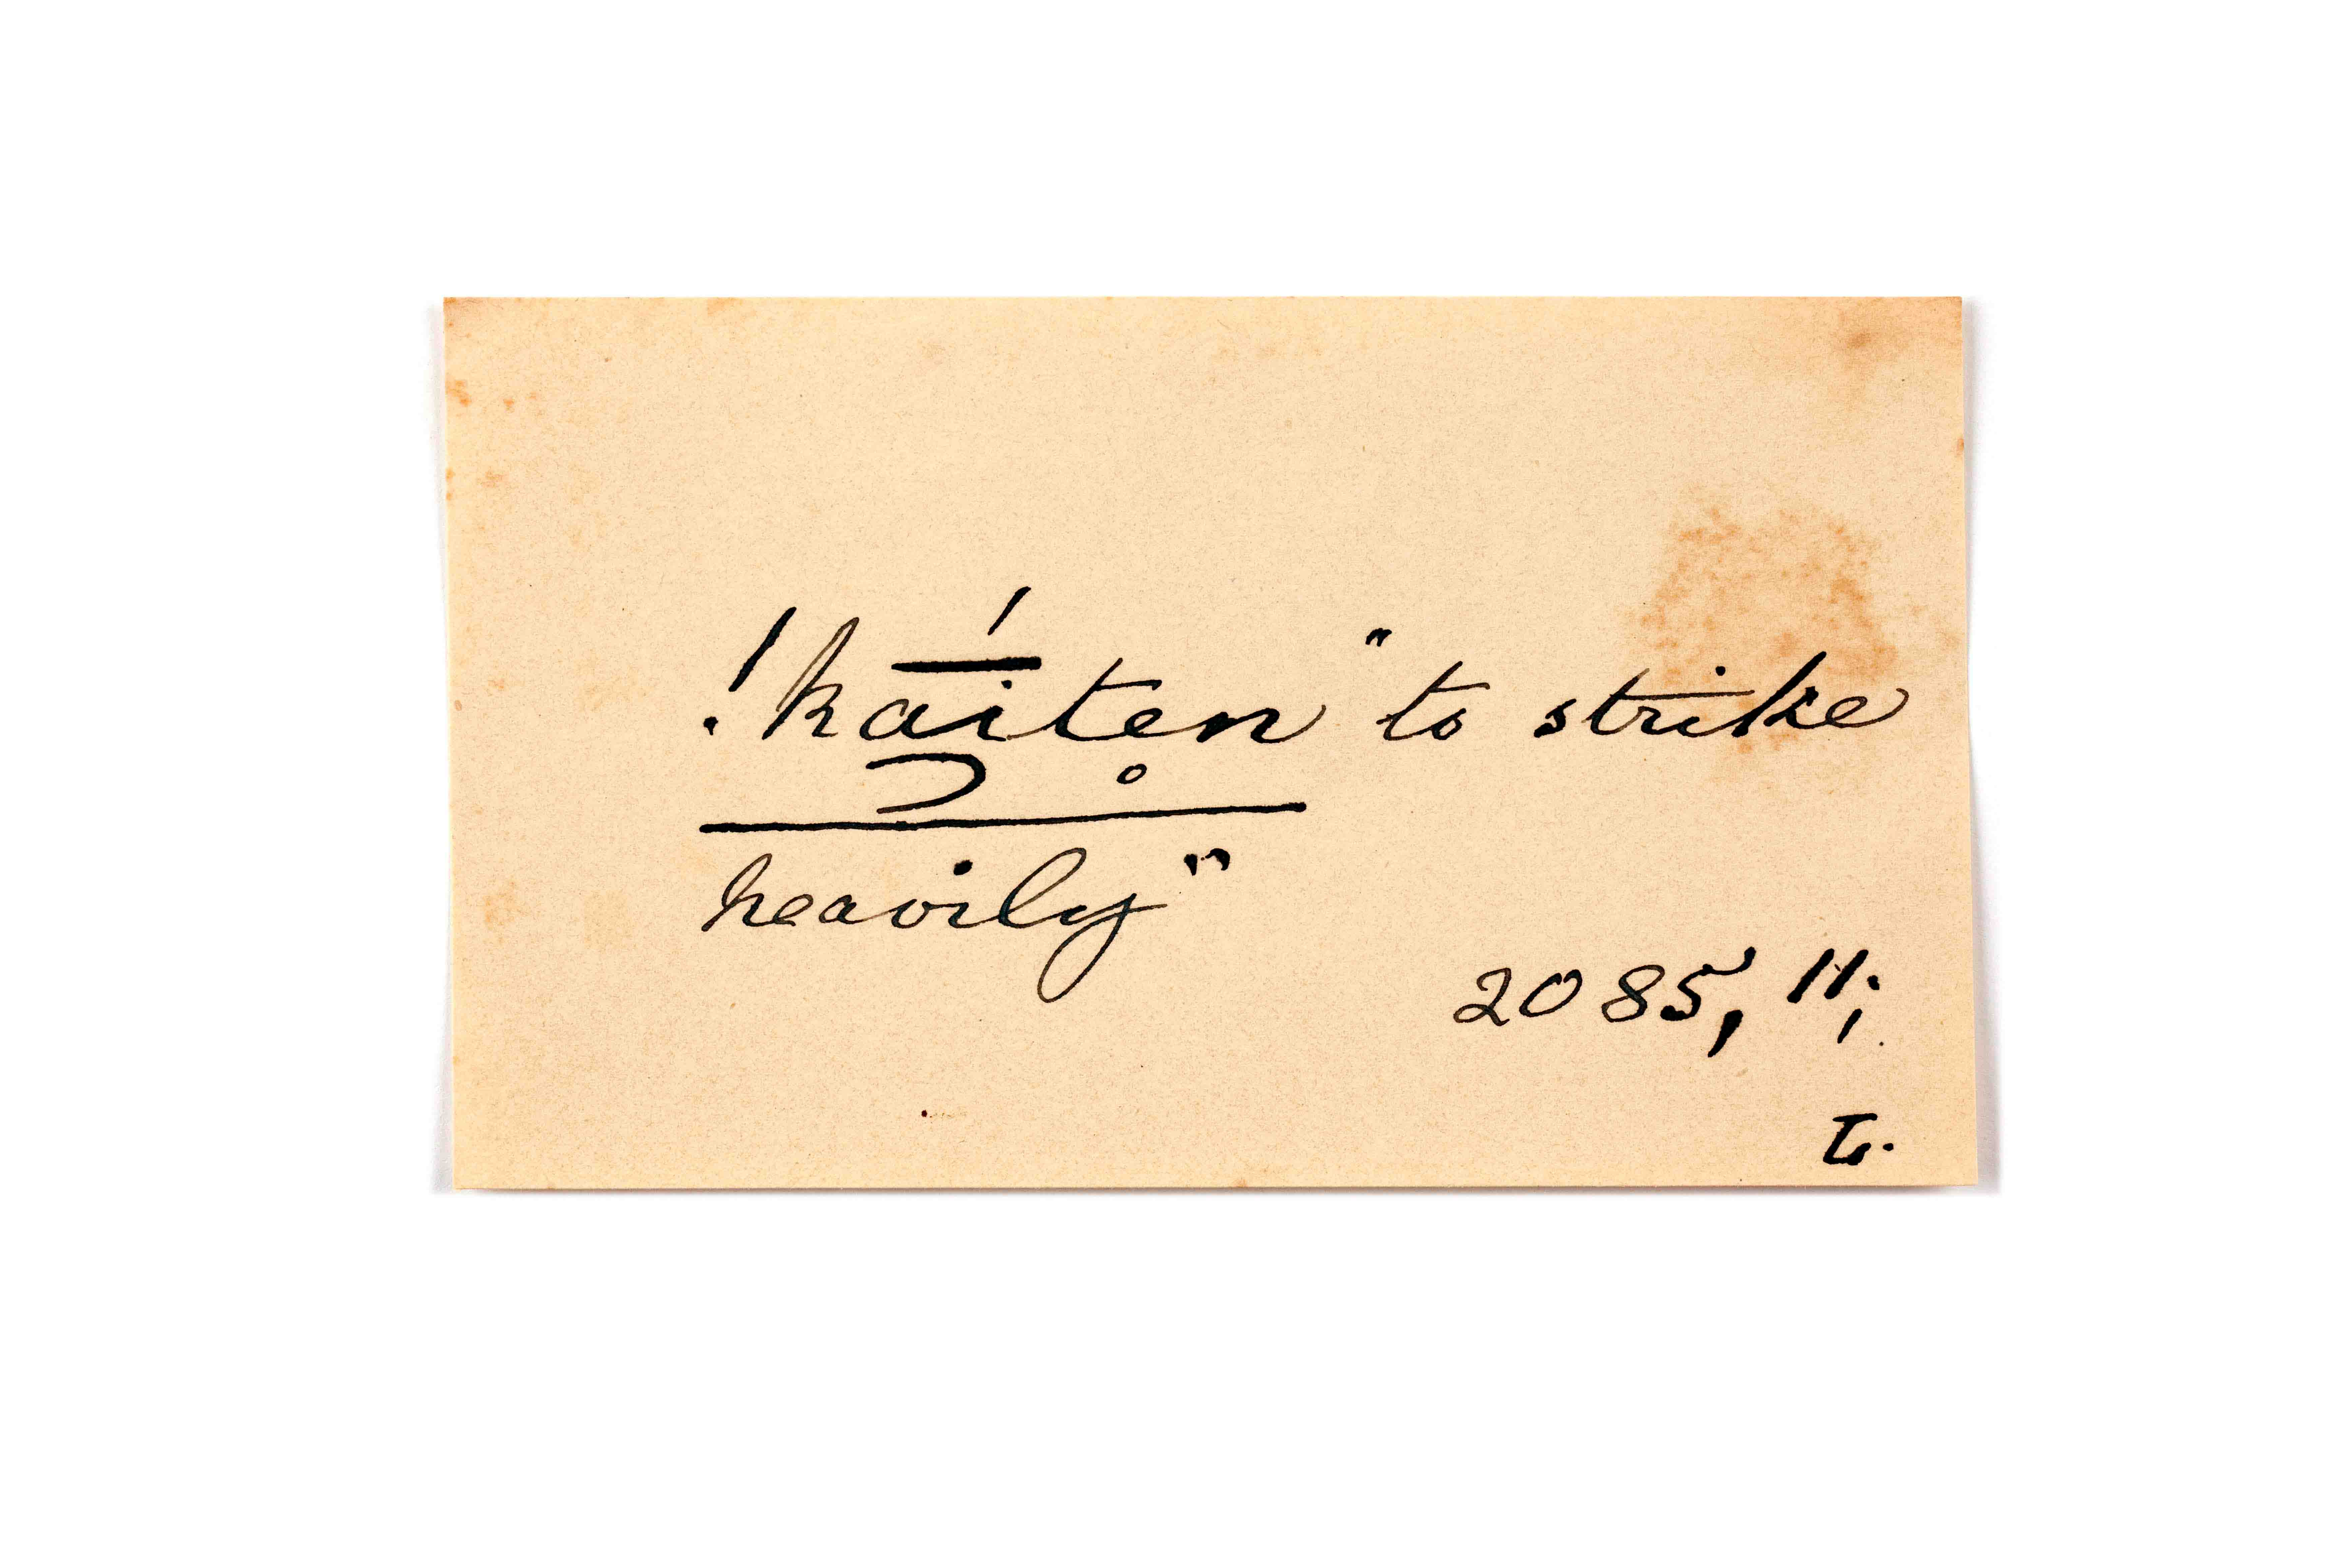 !kā́iten "to strike
heavily"
2085, 11;
L.